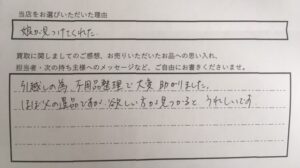 当店をお選びいただいた理由
娘が見つけてくれた
買取に関しましてのご感想、お売りいただいたお品への思い入れ、
担当者・次の持ち主様へのメッセージなど、ご自由にお書きくださいませ。
引越しの為、不用品整理で大変助かりました。
ほぼ父の遺品ですが、欲しい方が見つかるとうれしいです